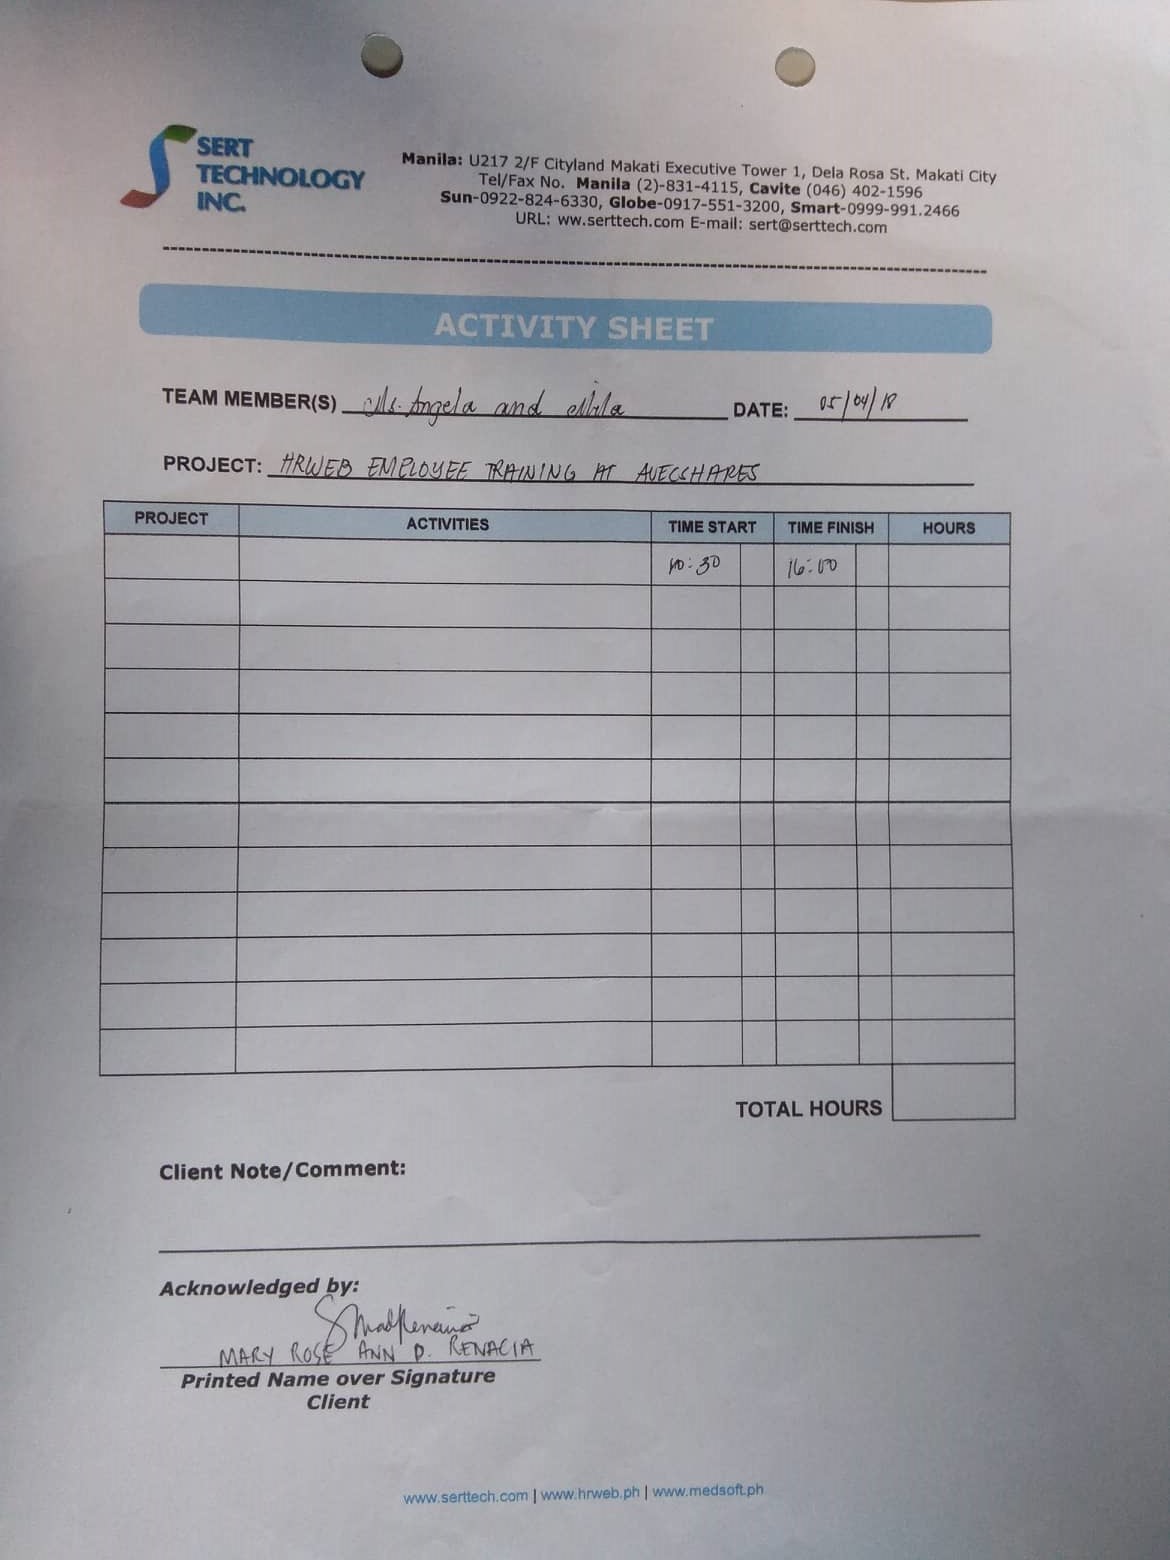 SERT
TECHNOLOGY
INC.
Manila: U217 2/F Cityland Makati Executive Tower 1, Dela Rosa St. Makati City
Tel/Fax No. Manila (2)-831-4115, Cavite (046) 402-1596
Sun-0922-824-6330, Globe-0917-551-3200, Smart-0999-991.2466
URL: ww.serttech.com E-mail: sert@serttech.com
ACTIVITY SHEET
TEAM MEMBER(S) Ms. Angela and DATE: 05/04/18
PROJECT: HRWEB EMPLOYEE TRAINING AT AVECSHARES
PROJECT ACTIVITIES TIME START TIME FINISH HOURS
10:30 16:00
TOTAL HOURS
Client Note/Comment:
Acknowledged by:
MARY ROSE ANN D. RENACIA
Printed Name over Signature
Client
www.serttech.com | www.hrweb.ph | www.medsoft.ph